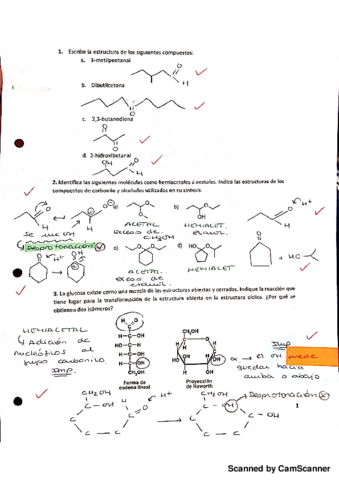 1. Escribe la estructura de los siguientes compuestos:
a. 3-metilpentanal
b. Dibutilcetona
c. 2,3-butanediona
d. 2-hidroxibutanal
2. Identifica las siguientes moléculas como hemiacetales o acetales. Indica las estructuras de los
compuestos de carbonilo y alcoholes utilizados en su síntesis.
a) b)
se une OH
ACETAL
exceso de
CH₃OH
HEMIACET.
Desprotonación
c) d)
ACETAL
exceso de
HEMIACET
3. La glucosa existe como una mezcla de las estructuras abiertas y cerradas. Indique la reacción que
tiene lugar para la transformación de la estructura abierta en la estructura cíclica. ¿Por qué se
obtienen dos isómeros?
HEMIACETAL
Adición de
nucleófilos al
grupo carbonilo.
Imp.
Forma de
cadena lineal
Proyección
de Haworth
Imp
α → el OH puede
quedar hacia
arriba o abajo
CH₂OH
CH₂OH
Desprotonación
Scanned by CamScanner